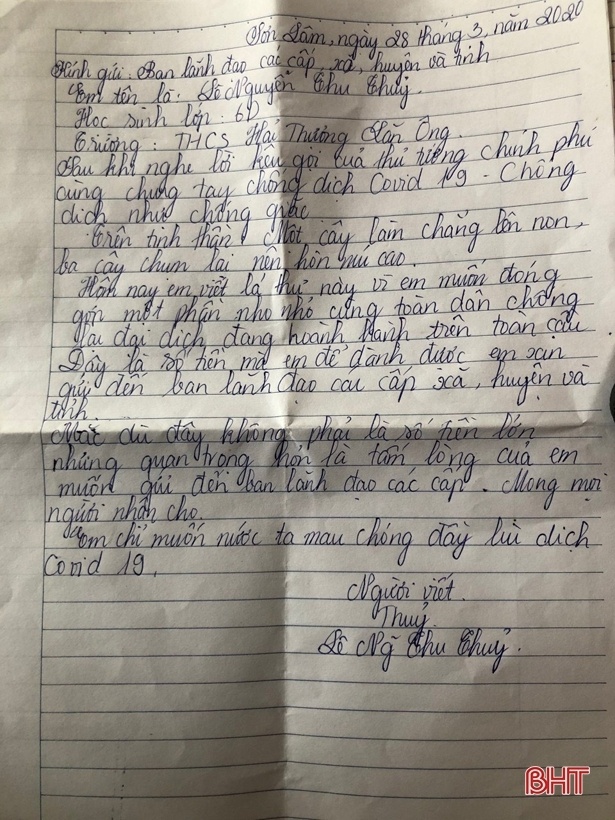 Sơn Lâm, ngày 28 tháng 3, năm 2020
Kính gửi: Ban lãnh đạo các cấp, xã, huyện và tỉnh
Em tên là: Lê Nguyễn Thu Thuỷ.
Học sinh lớp: 6D
Trường: THCS Hải Thượng Lãn Ông.
Sau khi nghe lời kêu gọi của thủ tướng chính phủ
cùng chung tay chống dịch Covid 19 - Chống
dịch như chống giặc
Trên tinh thần: Một cây làm chẳng lên non,
ba cây chụm lại nên hòn núi cao.
Hôm nay em viết lá thư này vì em muốn đóng
góp một phần nho nhỏ cùng toàn dân chống
lại đại dịch đang hoành hành trên toàn cầu.
Đây là số tiền mà em để dành được em xin
gửi đến ban lãnh đạo các cấp xã, huyện và
tỉnh.
Mặc dù đây không phải là số tiền lớn
nhưng quan trọng hơn là tấm lòng của em
muốn gửi đến ban lãnh đạo các cấp. Mong mọi
người nhận cho.
Em chỉ muốn nước ta mau chóng đẩy lùi dịch
Covid 19.
Người viết.
Thuỷ
Lê Ng Thu Thuỷ.
BHT